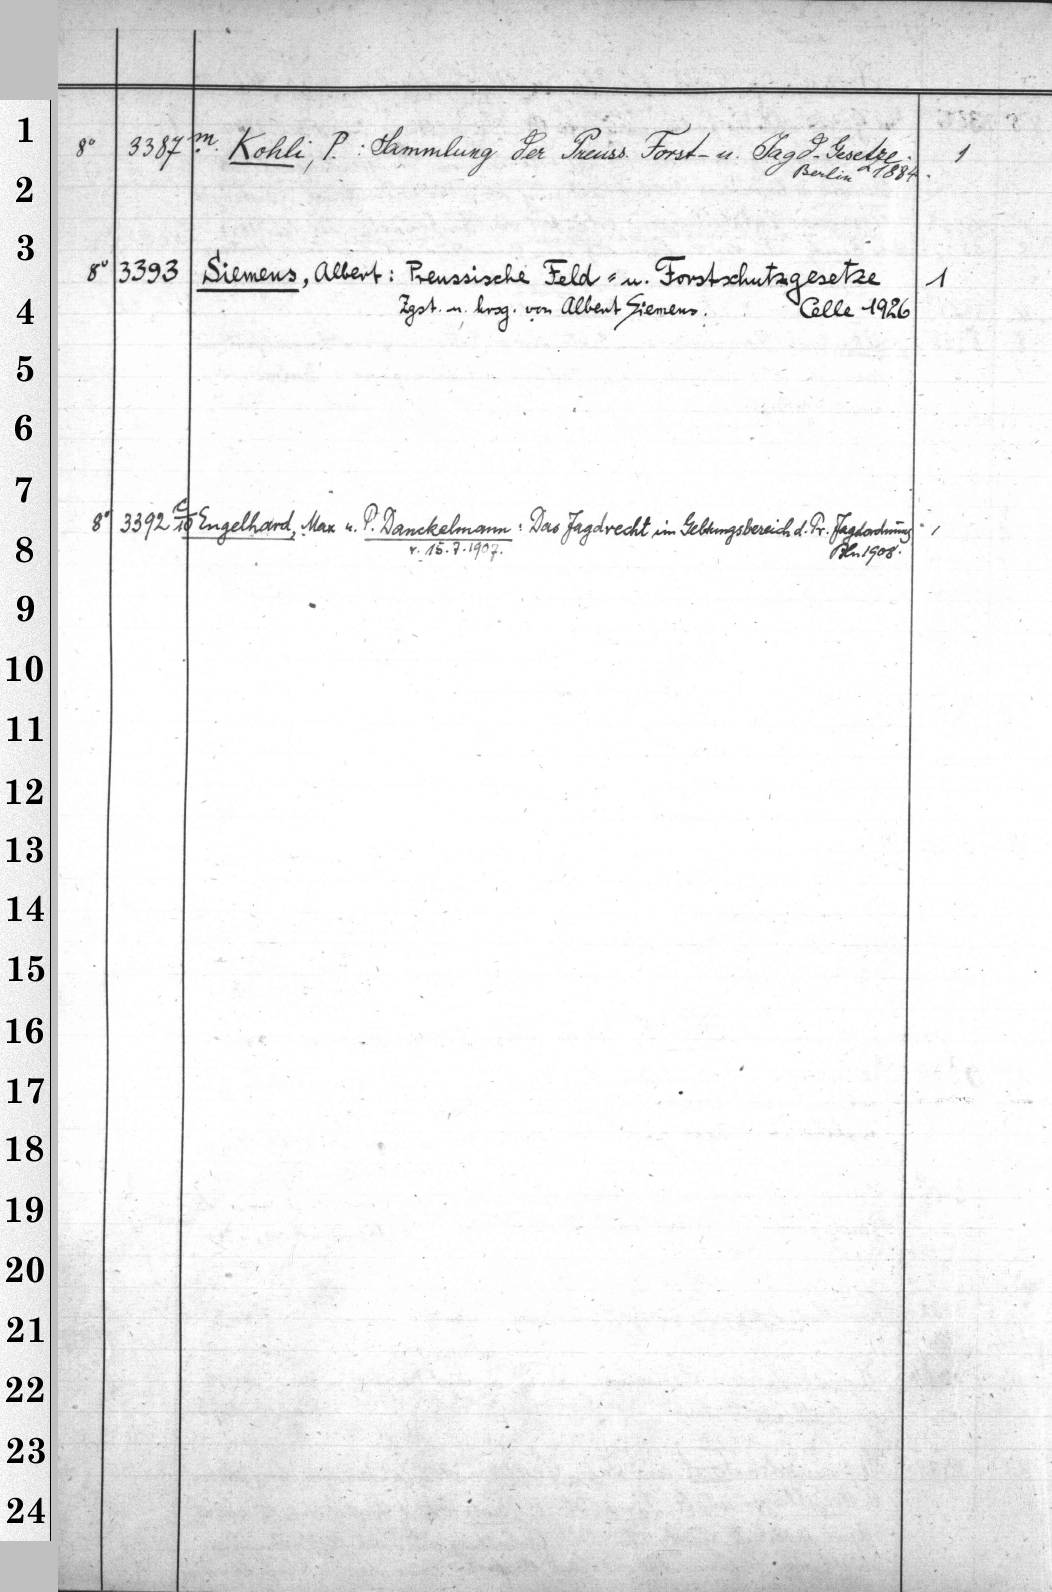 1
8° 3387 m. Kohli, P. : Sammlung der Preuss. Forst- u. Jagd-Gesetze. 1
Berlin 1884.
2
3
8° 3393 Siemens, Albert : Preussische Feld- u. Forstschutzgesetze 1
4
Zgst. u. hrsg. von Albert Siemens. Celle 1926
5
6
7
8° 3392 c/10 Engelhard, Max u. P. Danckelmann : Das Jagdrecht im Geltungsbereich d. Pr. Jagdordnung 1
8
v. 15.7.1907. Bln. 1908.
9
10
11
12
13
14
15
16
17
18
19
20
21
22
23
24